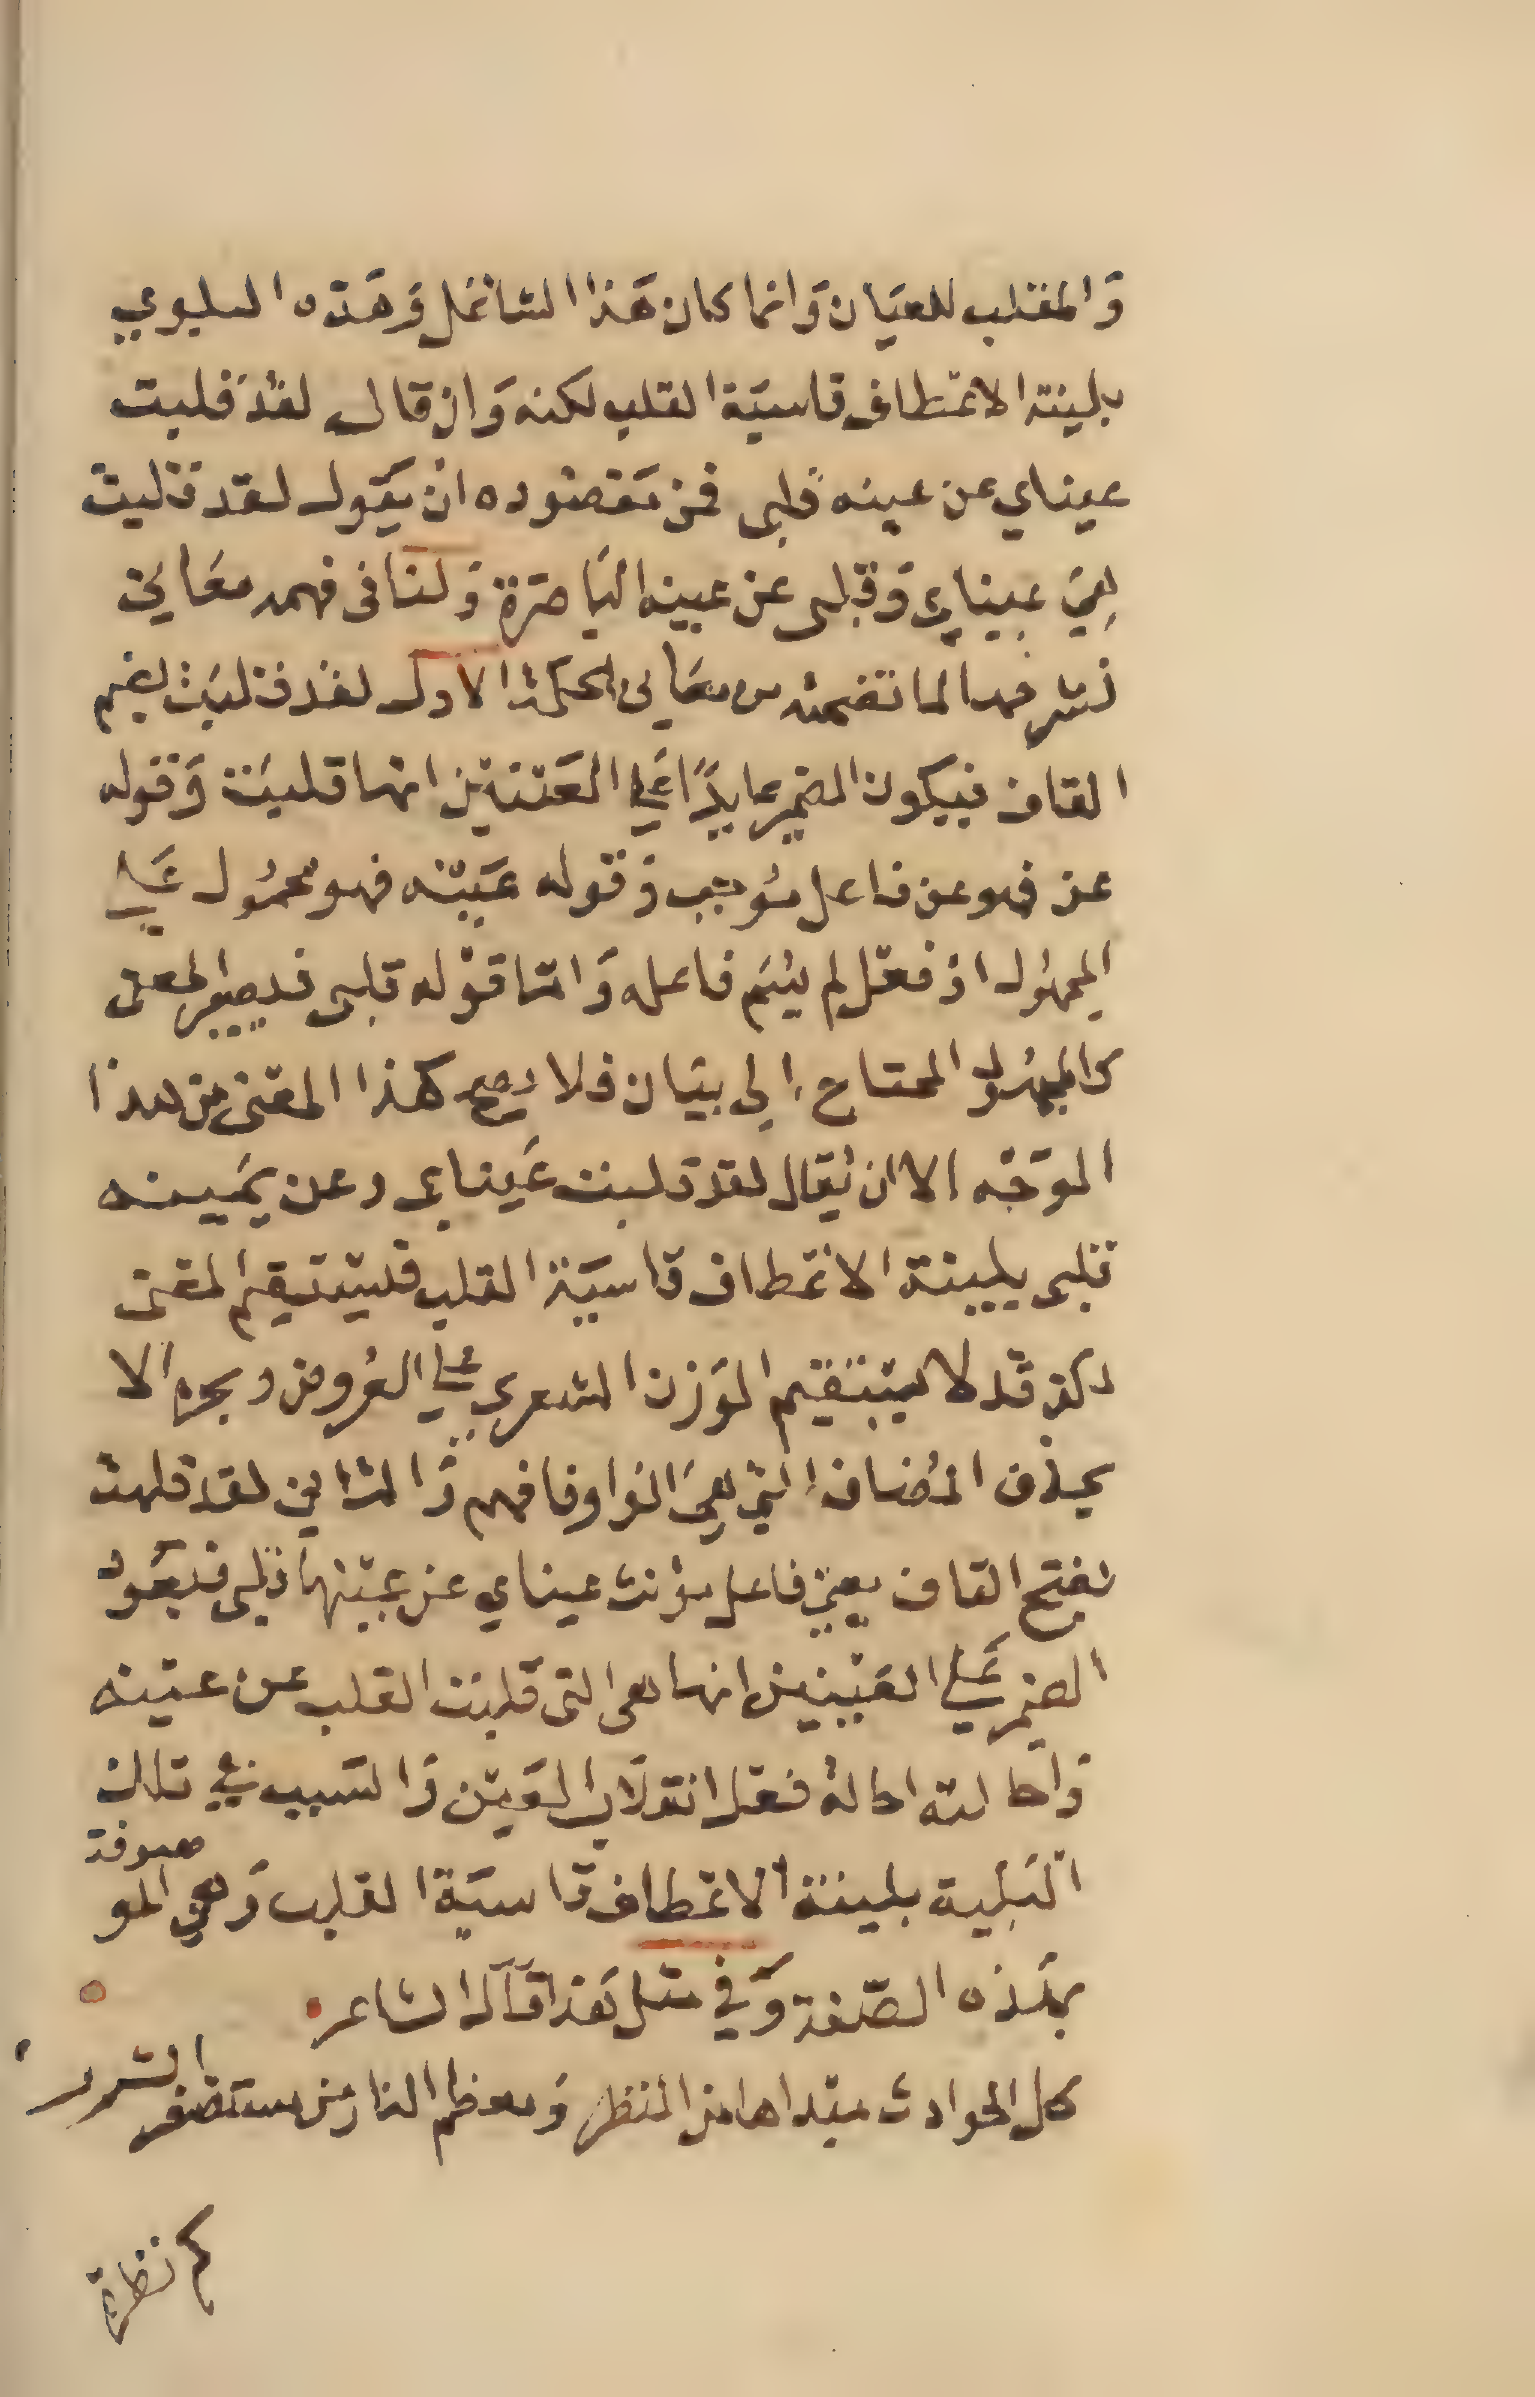 وَالمقلب للعيَان وَانما كان هَذا الشاغل وَهَذه البلوي
بلينة الاعطاف قاسيَة القلب لكنه وَان قال لقد قلبت
عيناي عن عينه قلبى فمن مَقصوده ان يقول لقد قلبت
هيَ عيناي وَقلبى عن عينه البَاصرَة وَلنا فى فهمه معَاني
لما تضمنه من معَانى الحكمة الاول لقد قلبَت بضم
القاف فيكون الضمير عايدًا عَلي العَينين انها قلبَت وَقوله
عن فهو عن فاعل مُوجب وَقوله عَينه فهو محمُول عَلي
المجهُول اذ فعَل لم يسَم فاعله وَامّا قوله قلبى فيصير المعنى
كالمجهُول المحتاج الى بيَان فلا يصح هَذا المعَنى من هذا
الموَجّه الا ان يُقال لقد قلبت عَيناى وعن يمَينه
قلبى بلينة الاعَطاف قاسيَة القلب فليسَتقيم المعَنى
ولكن قَد لا يسَتقيم الوَزن الشعرى عَلي العرُوض وبحره الا
بحذف المُضاف التي هيَ الوَاو فافهم وَالثاني لقد قلبت
بفتح القاف يعني فاعل مؤنث عيناي عن عينها قلبى فيعَود
الضمير عَلي العَينين انها هى التى قَلبَت القلب عن عيَنه
وَاحالته احالة فعَل انقلاب العَين وَالسَبب في تلك
البَلية بلينة الاعَطاف قاسيَة القلب وَهي الموصوفة
بهَذه الصّفة وَفي مثل هَذا قَال الشاعر
كل الحوادث مبداها من النظر وَمعظم النار من مستصَغر الشرر
نظرة